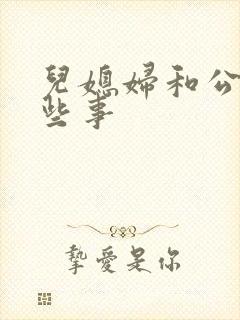 兒媳婦和公
些事
摯愛是你